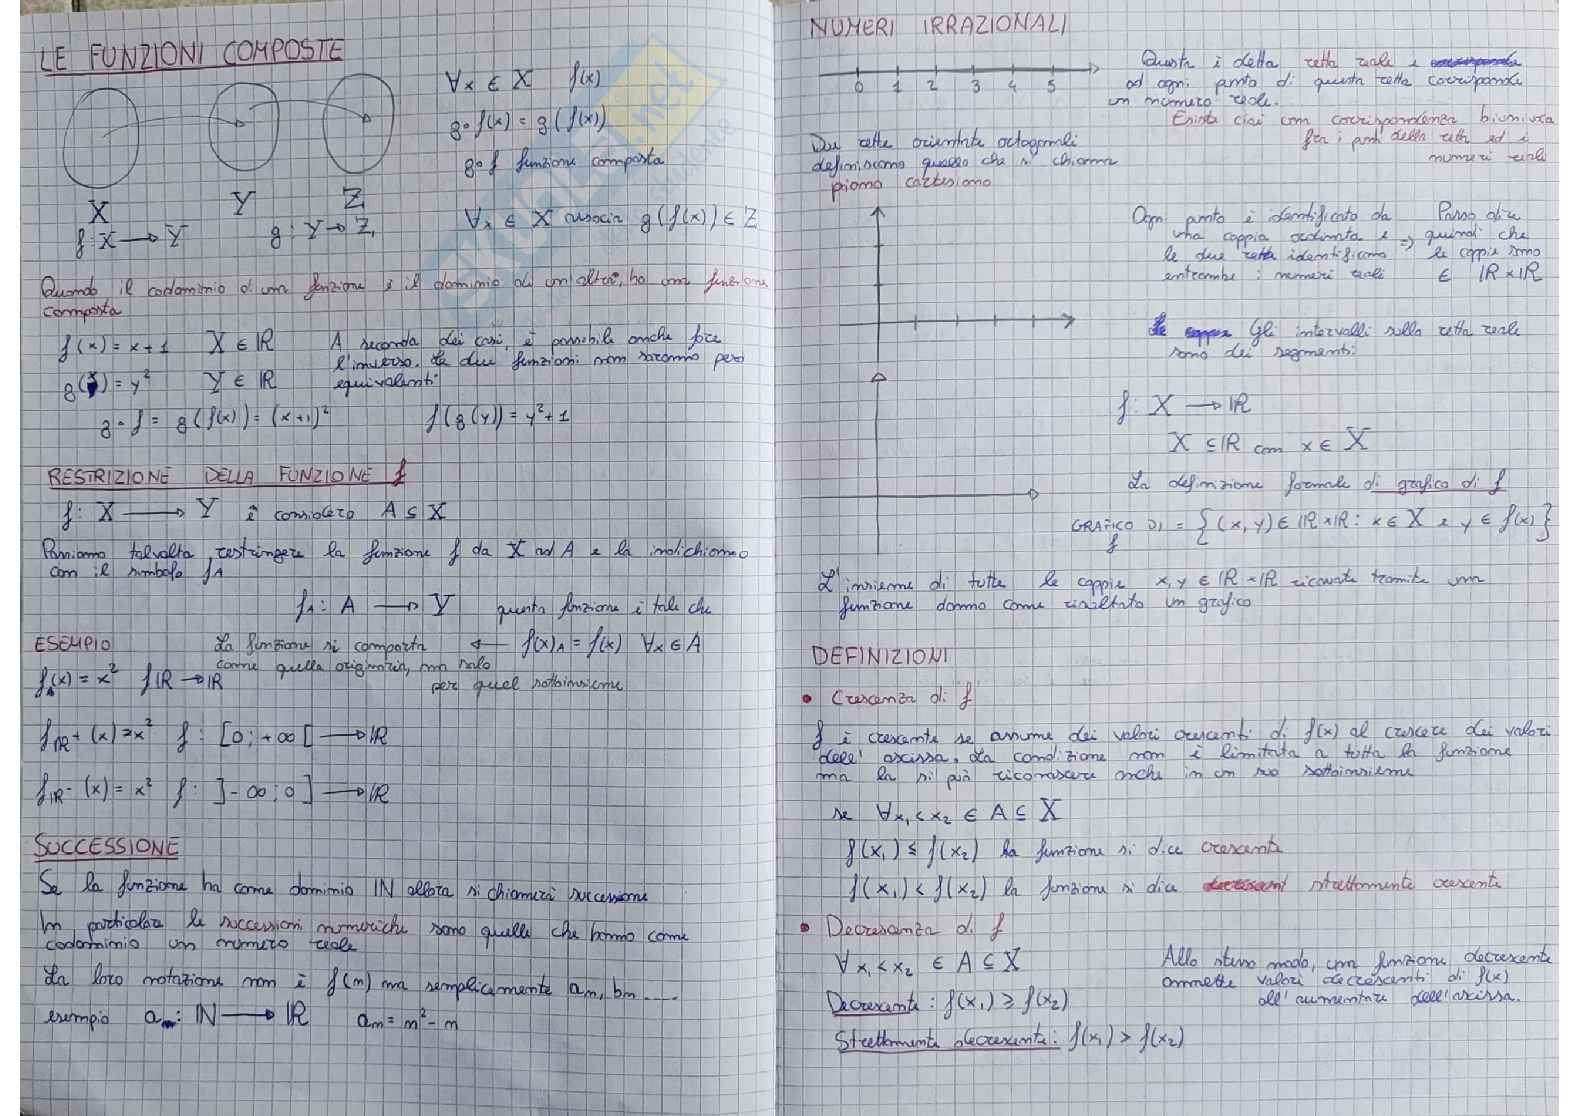 LE FUNZIONI COMPOSTE
∀x ∈ X f(x)
g∘f(x) = g(f(x))
g∘f funzione composta
X Y Z
f: X → Y g: Y → Z
∀x ∈ X associa g(f(x)) ∈ Z
Quando il codominio di una funzione è il dominio di un'altra, ho una funzione
composta
f(x) = x+1 X ∈ ℝ A seconda dei casi, è possibile anche fare
l'inverso. Le due funzioni non saranno però
g(y) = y² Y ∈ ℝ equivalenti
g∘f = g(f(x)) = (x+1)² f(g(y)) = y²+1
RESTRIZIONE DELLA FUNZIONE f
f: X → Y e considero A ⊆ X
Possiamo talvolta restringere la funzione f da X ad A e la indichiamo
con il simbolo fA
fA: A → Y questa funzione è tale che
ESEMPIO La funzione si comporta ← f(x)A = f(x) ∀x ∈ A
come quella originaria, ma solo
per quel sottoinsieme
f(x) = x² f ℝ → ℝ
fℝ+ (x) = x² f: [0; +∞[ → ℝ
fℝ- (x) = x² f: ]-∞; 0] → ℝ
SUCCESSIONE
Se la funzione ha come dominio ℕ allora si chiamerà successione
In particolare le successioni numeriche sono quelle che hanno come
codominio un numero reale
La loro notazione non è f(n) ma semplicemente an, bn ....
esempio an: ℕ → ℝ an = n² - n
NUMERI IRRAZIONALI
0 1 2 3 4 5
Questa è detta retta reale e
ad ogni punto di questa retta corrisponde
un numero reale.
Esiste cioè una corrispondenza biunivoca
fra i punti della retta ed i
numeri reali
Due rette orientate ortogonali
definiscono quello che si chiama
piano cartesiano
Ogni punto è identificato da
una coppia ordinata e ⇒
le due rette identificano
entrambe i numeri reali
Posso dire
quindi che
le coppie sono
∈ ℝ×ℝ
Gli intervalli sulla retta reale
sono dei segmenti
f: X → ℝ
X ⊆ ℝ con x ∈ X
La definizione formale di grafico di f
GRAFICO DI f = { (x, y) ∈ ℝ×ℝ : x ∈ X e y ∈ f(x) }
L'insieme di tutte le coppie x, y ∈ ℝ×ℝ ricavate tramite una
funzione danno come risultato un grafico
DEFINIZIONI
• Crescenza di f
f è crescente se assume dei valori crescenti di f(x) al crescere dei valori
dell'ascissa. La condizione non è limitata a tutta la funzione
ma la si può riconoscere anche in un suo sottoinsieme
se ∀x₁ < x₂ ∈ A ⊆ X
f(x₁) ≤ f(x₂) la funzione si dice crescente
f(x₁) < f(x₂) la funzione si dice strettamente crescente
• Decrescenza di f
∀x₁ < x₂ ∈ A ⊆ X
Allo stesso modo, una funzione decrescente
ammette valori decrescenti di f(x)
all'aumentare dell'ascissa.
Decrescente: f(x₁) ≥ f(x₂)
Strettamente decrescente: f(x₁) > f(x₂)